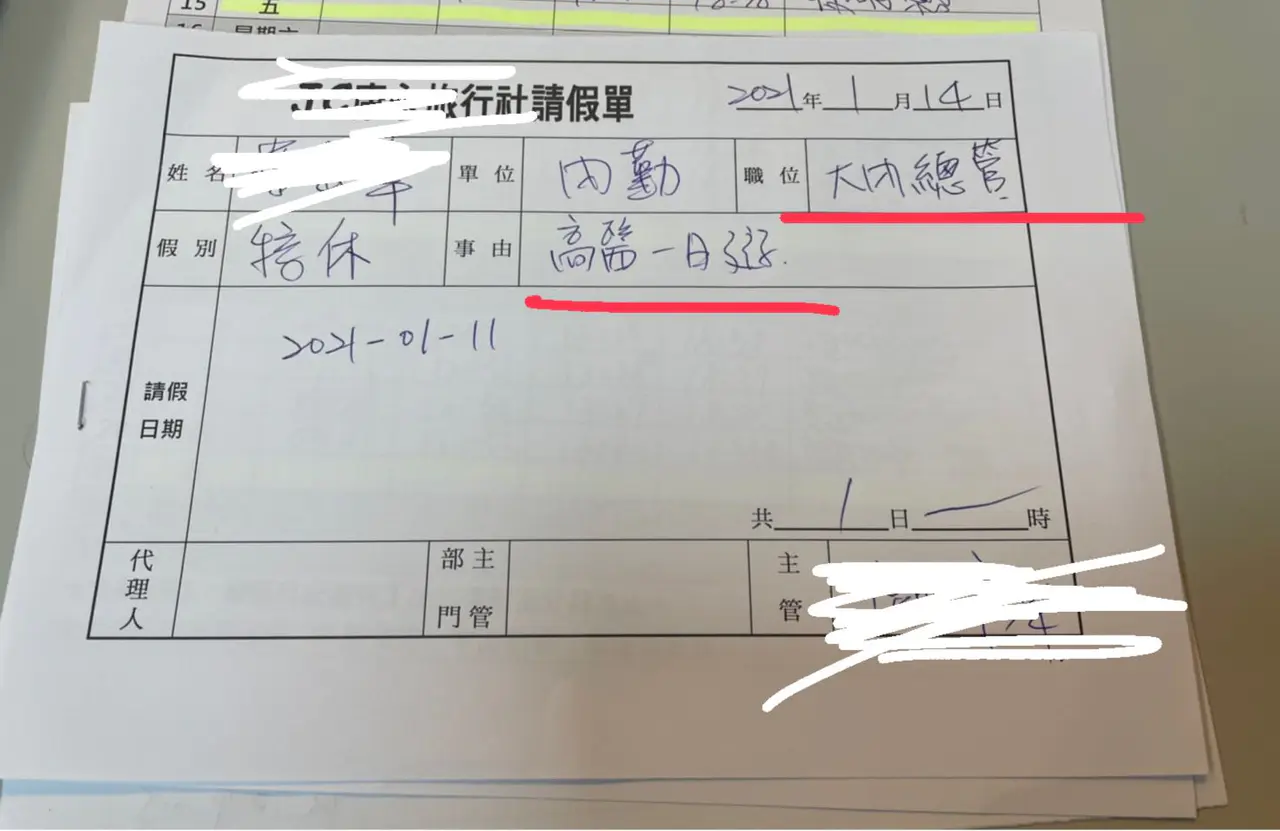 15 五
旅行社請假單 2021年1月14日
姓名 單位 內勤 職位 大內總管.
假別 特休 事由 高醫一日遊.
2021-01-11
請假
日期
共1日一時
代理人 部門主管 主管